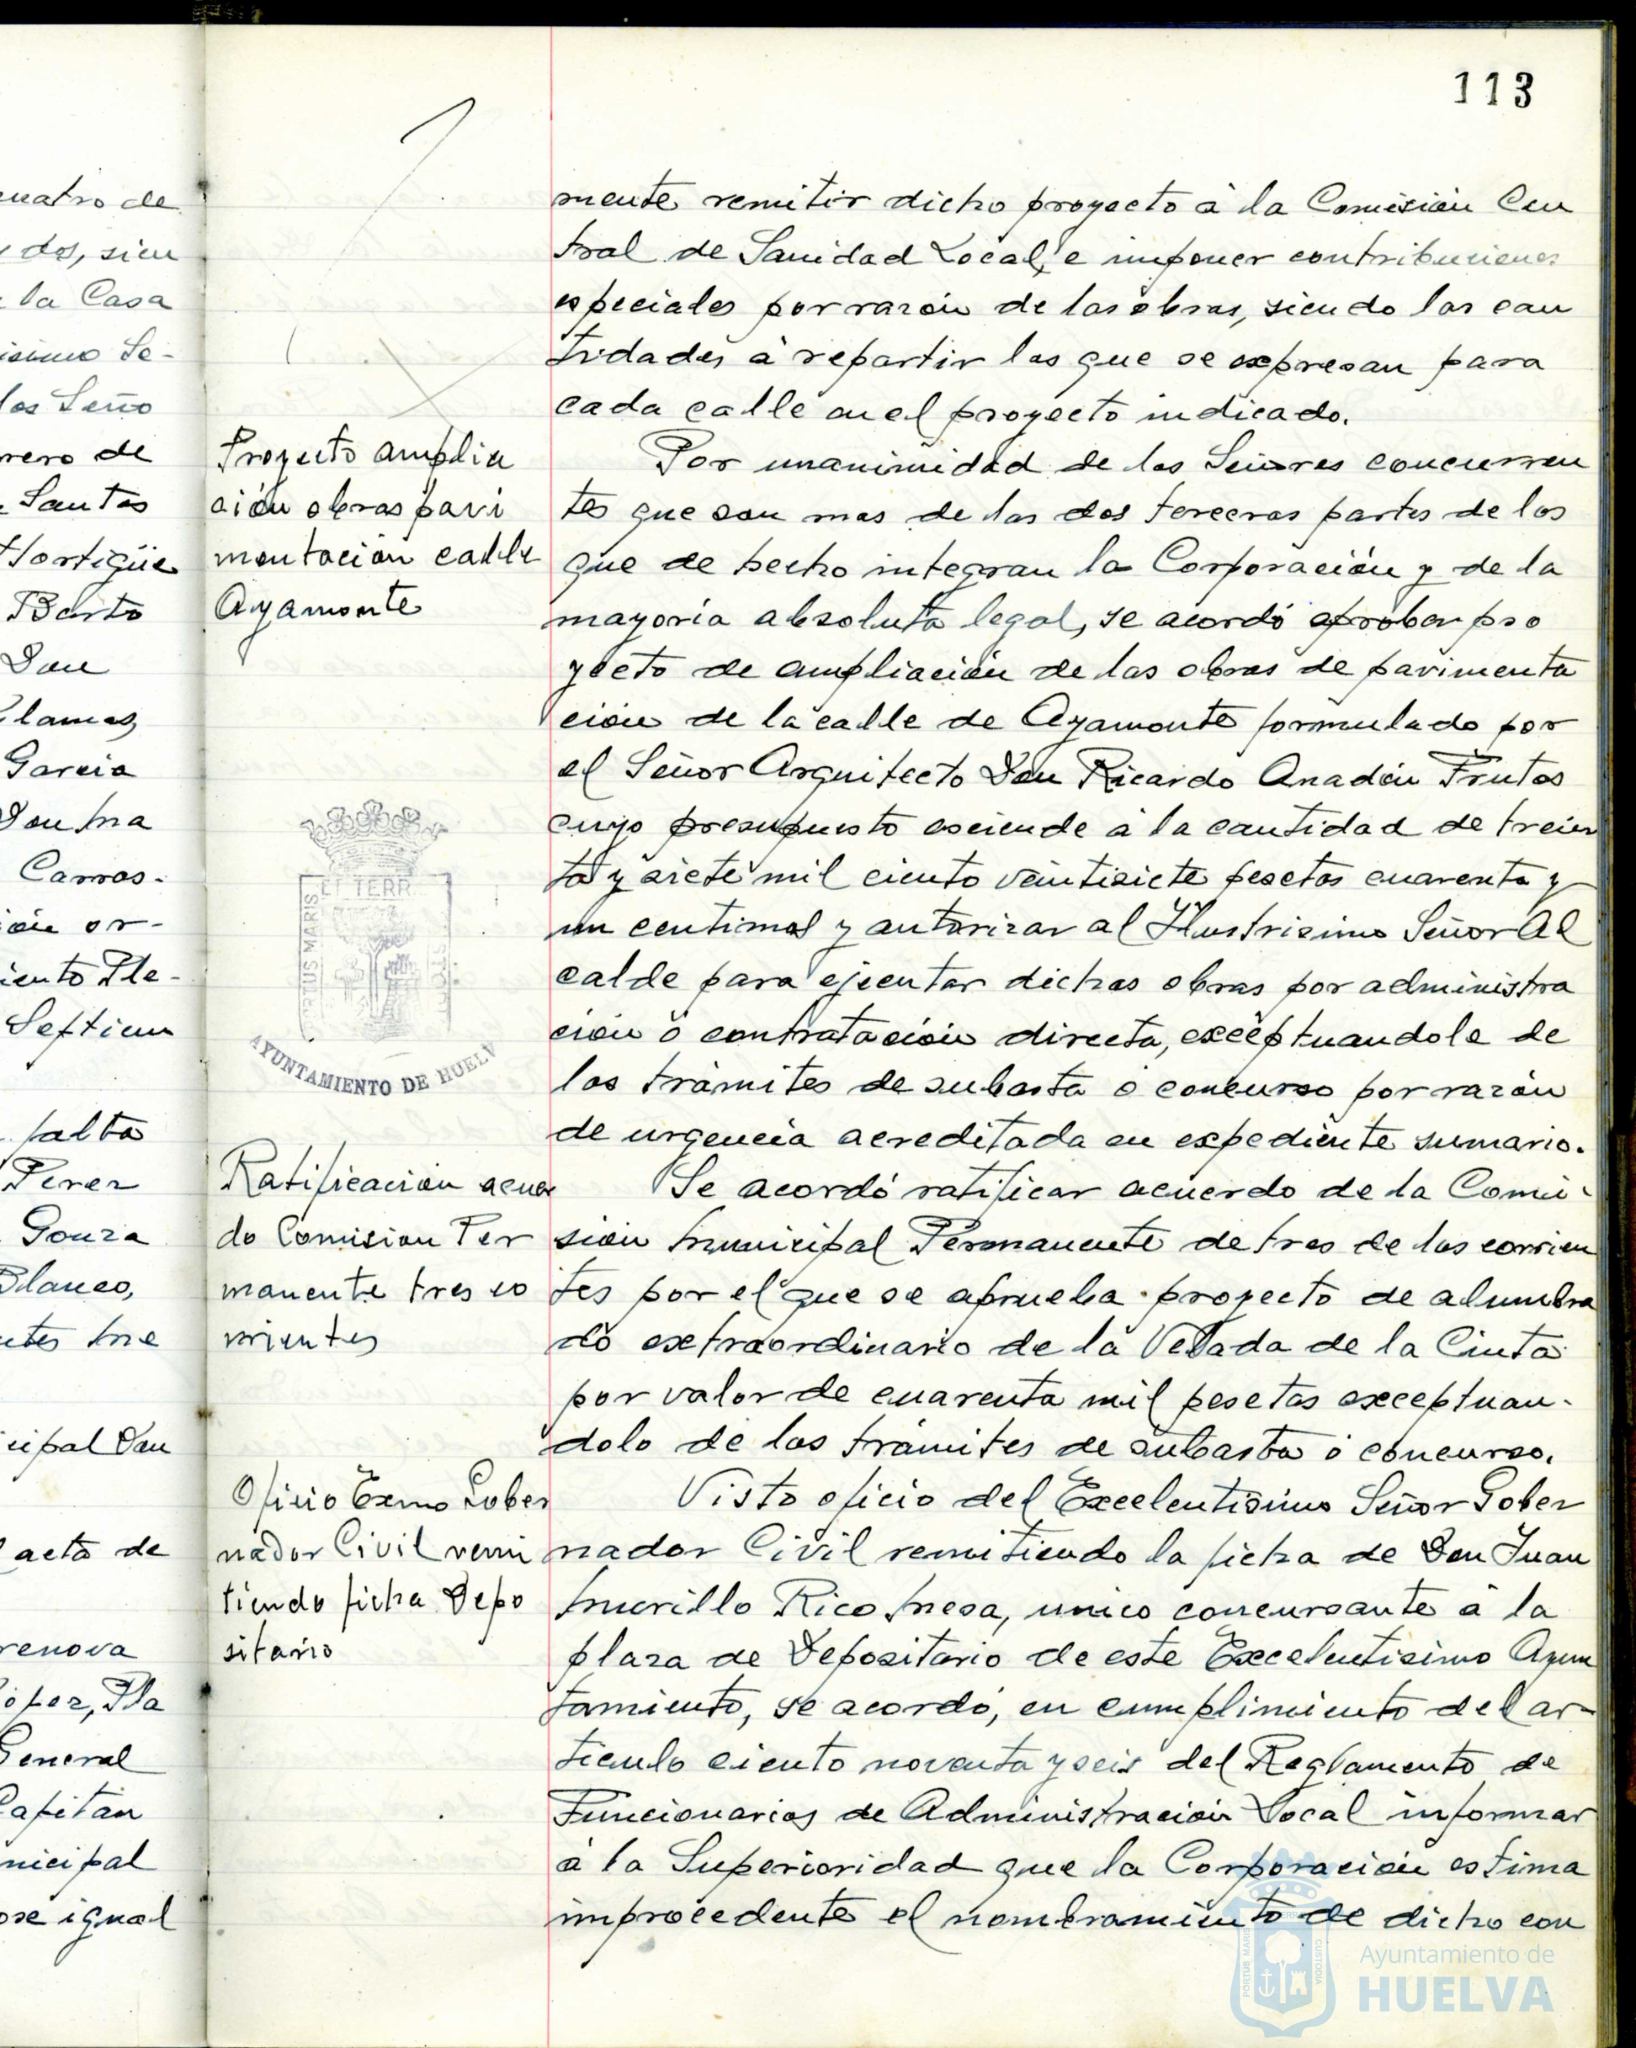 113
cuatro de
y dos, sien
la Casa
isimo Se-
los Seño
rrero de
Santos
Hortigüe
Barto
Don
Llamas,
Garcia
Don Ma
Carras-
ión or-
iento Ple-
Septiem
falta
Perez
Gonza
Blanco,
ntes Me
icipal Don
acta de
renova
López, Pla
General
Capitan
nicipal
ose igual
mente remitir dicho proyecto á la Comisión Cen
tral de Sanidad Local, e imponer contribuciones
especiales por razón de las obras, siendo las can
tidades á repartir las que se expresan para
cada calle en el proyecto indicado.
Proyecto amplia
ción obras pavi
mentación calle
Ayamonte
Por unanimidad de los Señores concurren
tes que son mas de las dos terceras partes de los
que de hecho integran la Corporación y de la
mayoria absoluta legal, se acordó aprobar pro
yecto de ampliación de las obras de pavimenta
ción de la calle de Ayamonte formulado por
el Señor Arquitecto Don Ricardo Anadón Frutos
cuyo presupuesto asciende á la cantidad de trein
ta y siete mil ciento veintisiete pesetas cuarenta y
un centimos y autorizar al Ilustrisimo Señor Al
calde para ejecutar dichas obras por administra
ción ó contratación directa, exceptuandola de
los trámites de subasta ó concurso por razón
de urgencia acreditada en expediente sumario.
ET TERR
PORTUS MARIS
AYUNTAMIENTO DE HUELV
Ratificación acuer
do Comision Per
manente tres co
rrientes
Se acordó ratificar acuerdo de la Comi-
sión Municipal Permanente de tres de los corrien
tes por el que se aprueba proyecto de alumbra
do extraordinario de la Velada de la Cinta
por valor de cuarenta mil pesetas exceptuan-
dolo de los trámites de subasta ó concurso.
Oficio Exmo Gober
nador Civil remi
tiendo ficha Depo
sitario
Visto oficio del Excelentisimo Señor Gober
nador Civil remitiendo la ficha de Don Juan
Murillo Rico Mesa, unico concursante á la
plaza de Depositario de este Excelentisimo Ayun
tamiento, se acordó, en cumplimiento del ar-
ticulo ciento noventa y seis del Reglamento de
Funcionarios de Administración Local informar
á la Superioridad que la Corporación estima
improcedente el nombramiento de dicho con
PORTUS MARIS
CUSTODIA
Ayuntamiento de
HUELVA